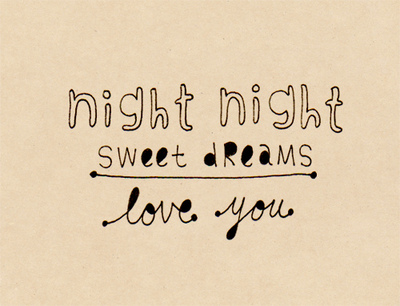 night night
sweet dReaMs
love you